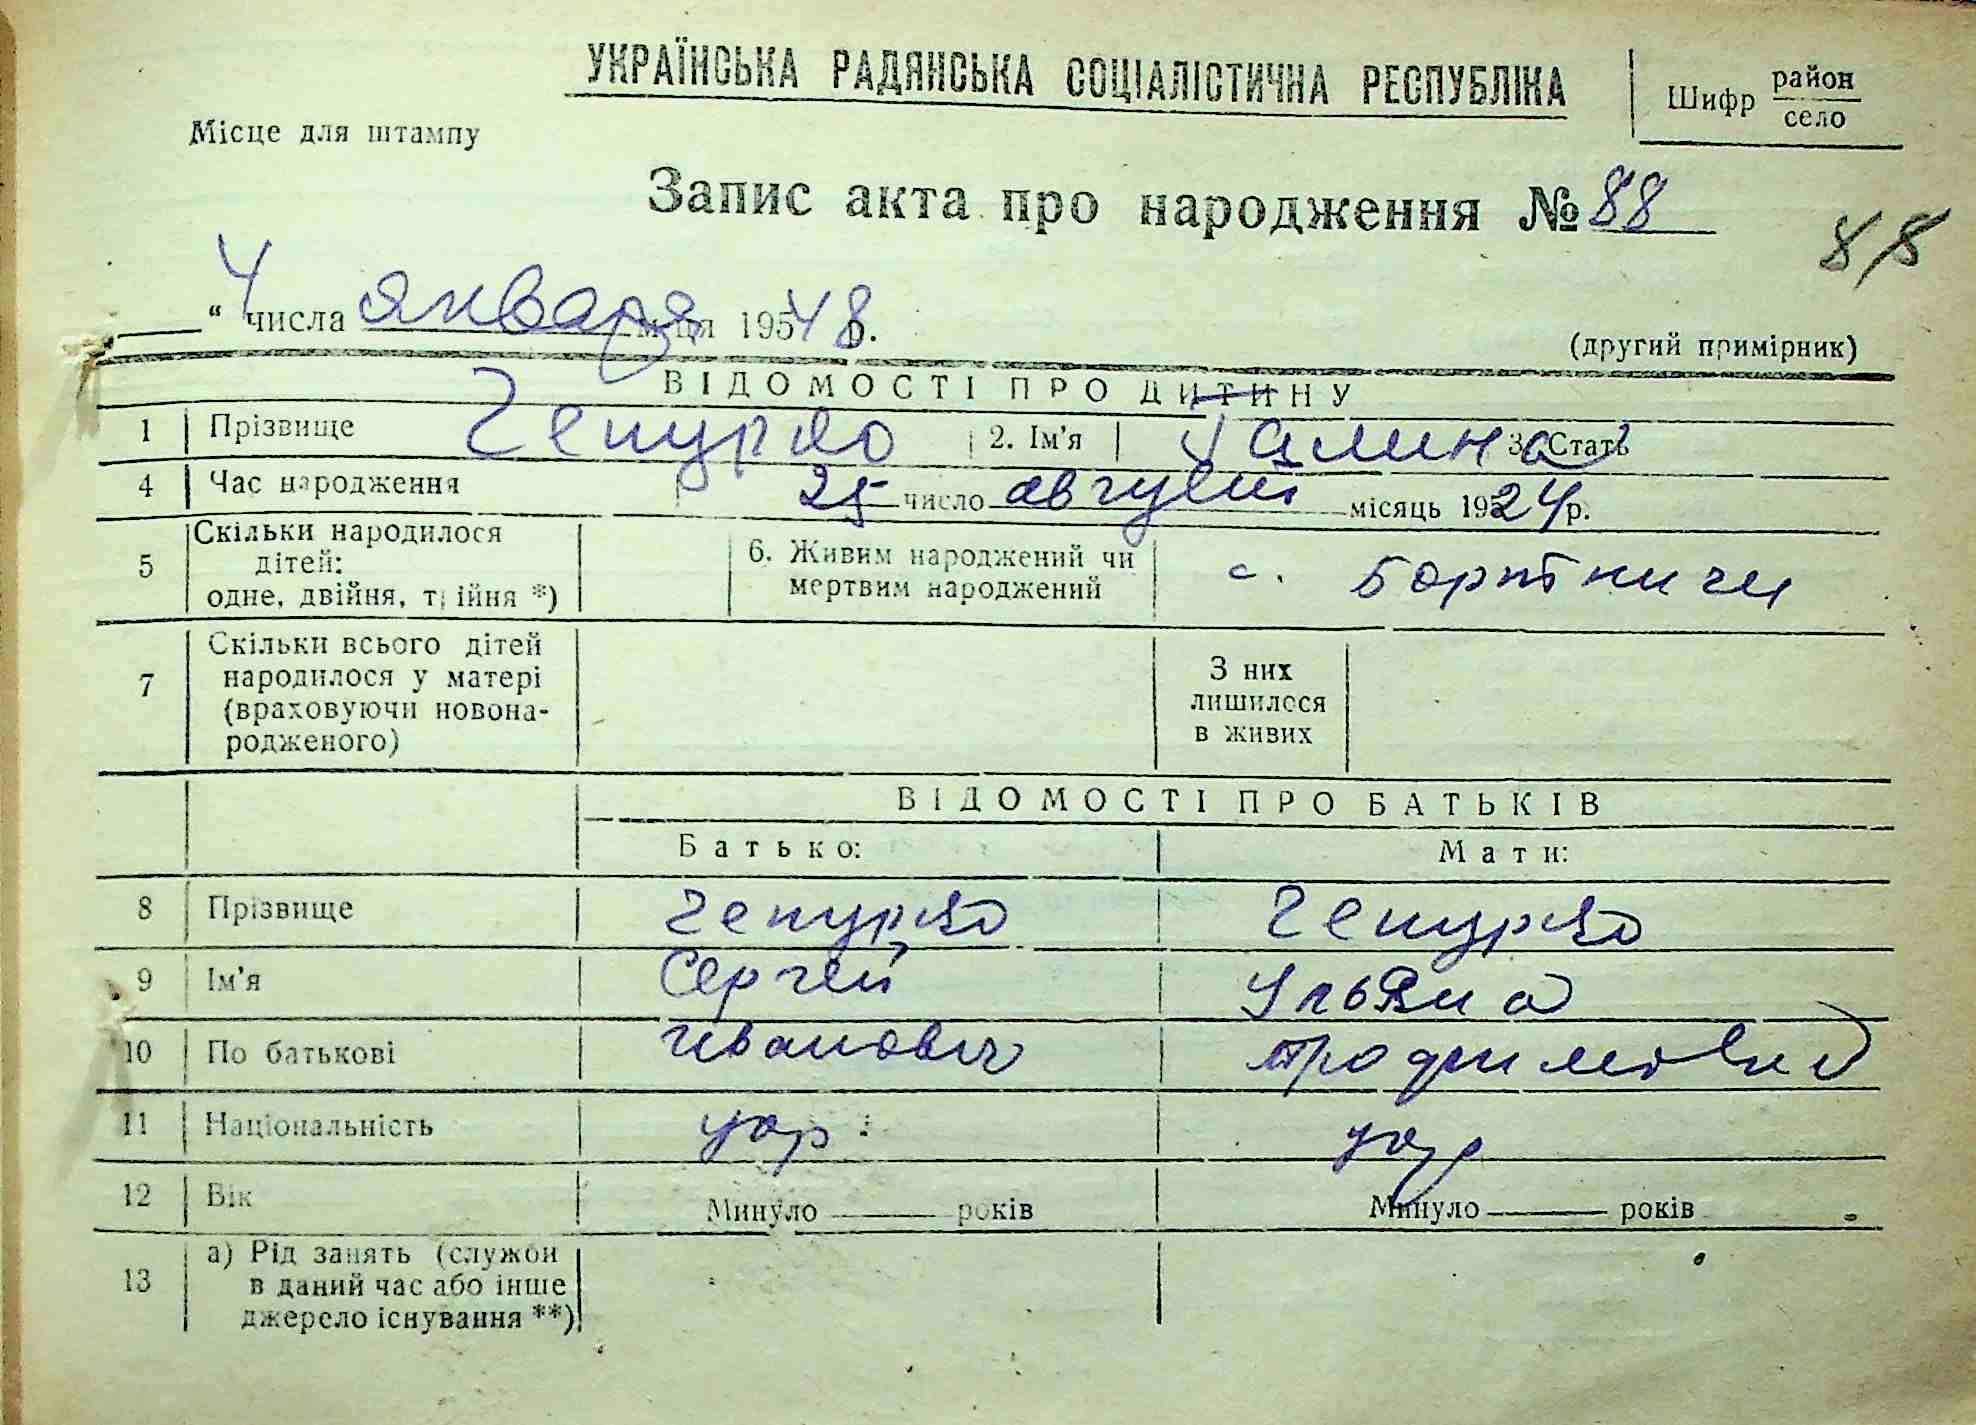 УКРАЇНСЬКА РАДЯНСЬКА СОЦІАЛІСТИЧНА РЕСПУБЛІКА
Шифр район
село
Місце для штампу
Запис акта про народження № 88
88
" 4 числа января м-ця 195 48 р.
(другий примірник)
ВІДОМОСТІ ПРО ДИТИНУ
1 Прізвище Чепурко 2. Ім'я Галина 3. Стать
4 Час народження 25 число август місяць 1924 р.
5 Скільки народилося дітей: одне, двійня, трійня *) 6. Живим народжений чи мертвим народжений с. Бортничи
7 Скільки всього дітей народилося у матері (враховуючи новонародженого) З них лишилося в живих
ВІДОМОСТІ ПРО БАТЬКІВ
Батько: Мати:
8 Прізвище Чепурко Чепурко
9 Ім'я Сергей Ульяна
10 По батькові Иванович Трофимовна
11 Національність укр укр
12 Вік Минуло ____ років Минуло ____ років
13 а) Рід занять (служби в даний час або інше джерело існування **)